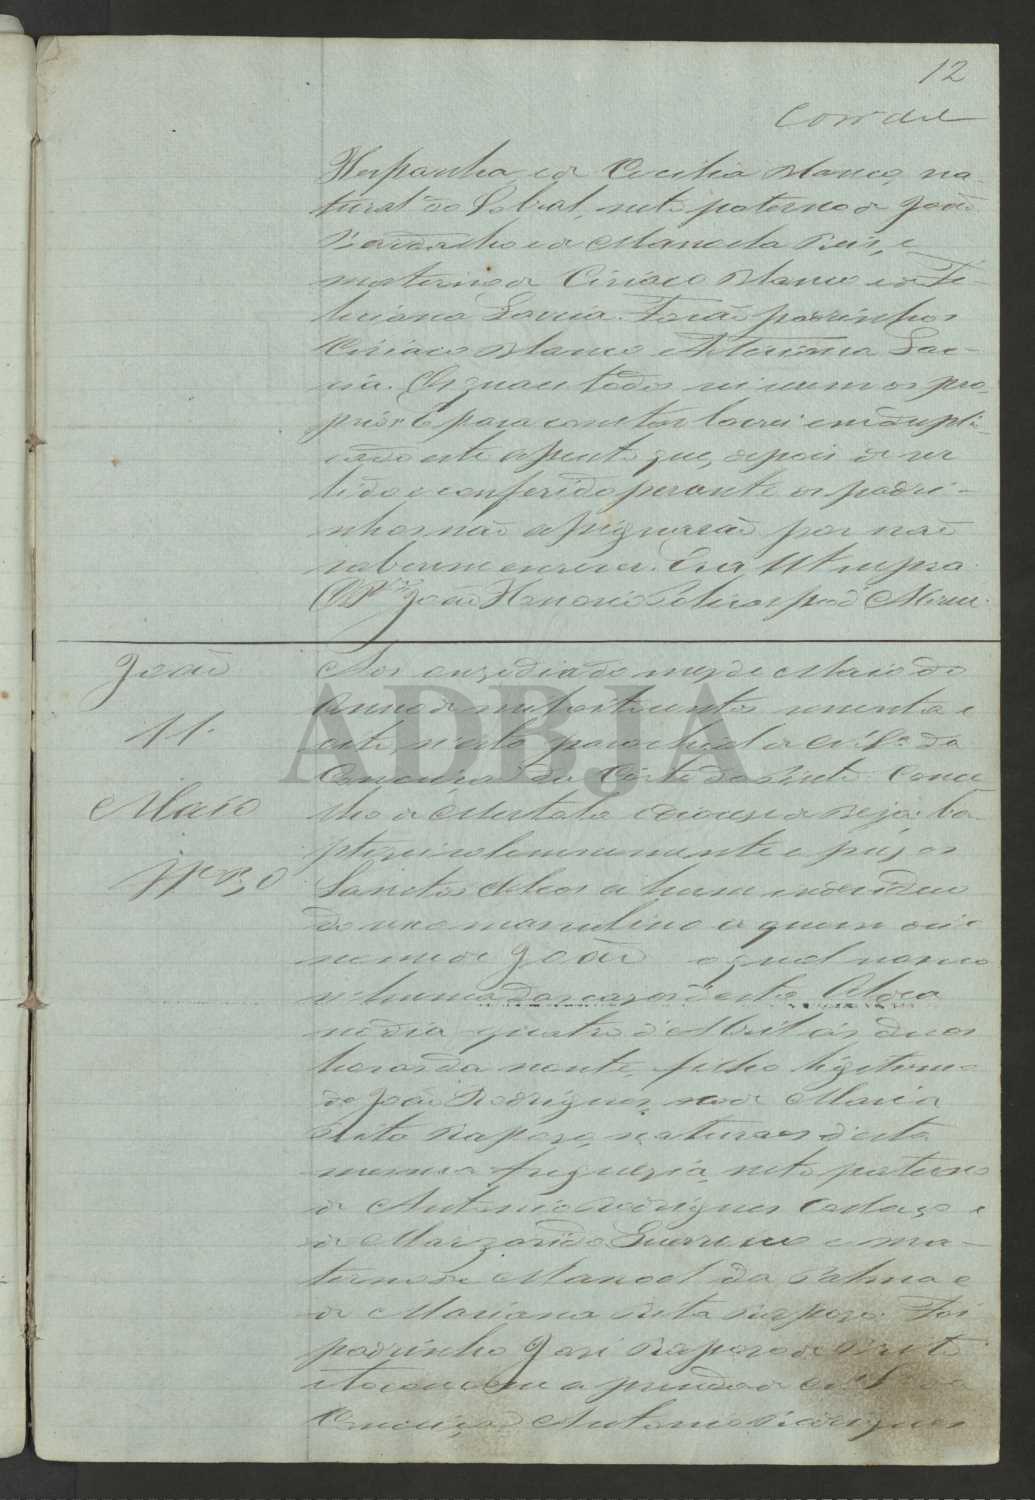 12
Hespanha e de Cecilia Blanco, na-
tural do Sobral, neto paterno de João
e de Manoela Reis, e
materno de Ciriaco Blanco e de Fe-
liciana Garcia. Forão padrinhos
Ciriaco Blanco e Feliciana Gar-
cia. Os quaes todos sei serem os pro-
prios. E para constar lavrei em dupli-
cado este assento que, depois de ser
lido e conferido perante os padri-
nhos não assignarão por não
saberem escrever. Era Ut supra.
João
João
11
Maio
Nº
Aos onze dias do mez de Maio do
Anno de mil oitocentos setenta e
sete n'esta parochial de N. Sª da
Conceição da Côrte do Pinto, Conce-
lho de Mertola, diocese de Beja, ba-
ptizei solemnemente e puz os
Sanctos Oleos a hum individuo
do sexo masculino a quem dei o
nome de João o qual nasceo
n'huma das casas d'esta Aldea
no dia quatro d'Abril ás duas
horas da noute, filho ligitimo
de João Rodrigues, e de Maria
Rita Raposo, naturaes d'esta
mesma freguezia, neto paterno
de Antonio Rodrigues e
de Margarida Guerreiro e ma-
terno de Manoel da Palma e
de Mariana Rita Raposo. Foi
padrinho José Raposo de Brito
e tocou com a prenda de N. Sª da
Conceição Antonio Rodrigues
ADBJA